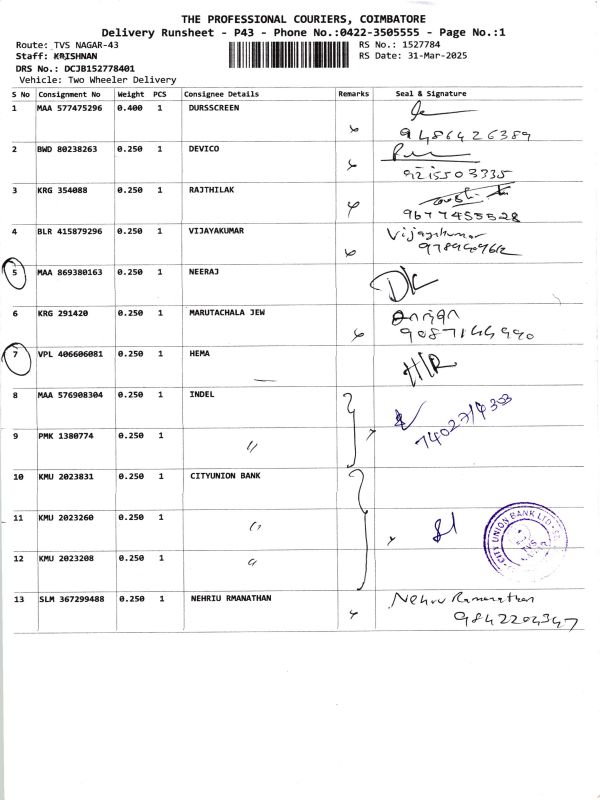 THE PROFESSIONAL COURIERS, COIMBATORE
Delivery Runsheet - P43 - Phone No.:0422-3505555 - Page No.:1
Route: TVS NAGAR-43 RS No.: 1527784
Staff: KRISHNAN RS Date: 31-Mar-2025
DRS No.: DCJB152778401
Vehicle: Two Wheeler Delivery
S No Consignment No Weight PCS Consignee Details Remarks Seal & Signature
1 MAA 577475296 0.400 1 DURSSCREEN
9486426389
2 BWD 80238263 0.250 1 DEVICO
9215503335
3 KRG 354088 0.250 1 RAJTHILAK
9677455528
4 BLR 415879296 0.250 1 VIJAYAKUMAR Vijayakumar
5 MAA 869380163 0.250 1 NEERAJ DK
6 KRG 291420 0.250 1 MARUTACHALA JEW
9087144990
7 VPL 406606081 0.250 1 HEMA HIR
8 MAA 576908304 0.250 1 INDEL
9 PMK 1380774 0.250 1 〃
10 KMU 2023831 0.250 1 CITYUNION BANK
11 KMU 2023260 0.250 1 〃
CITY UNION BANK LTD
TVS
12 KMU 2023208 0.250 1 〃
13 SLM 367299488 0.250 1 NEHRIU RMANATHAN Nehru Ramanathan
9842204347